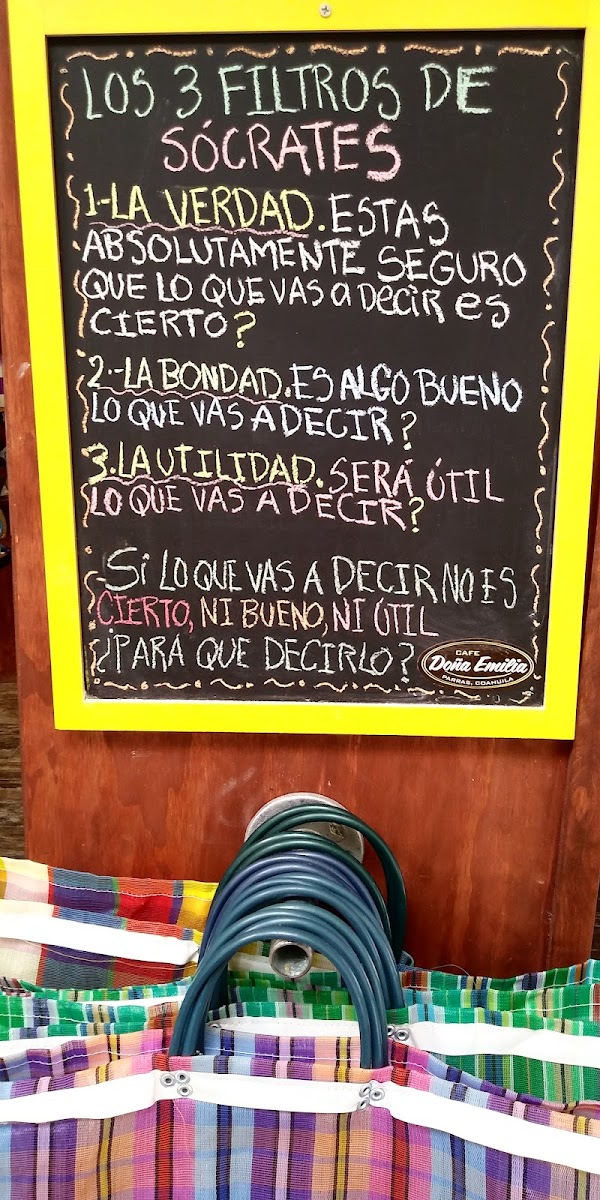 LOS 3 FILTROS DE
SÓCRATES
1-LA VERDAD. ESTAS
ABSOLUTAMENTE SEGURO
QUE LO QUE VAS a Decir es
CIERTO?
2.-LA BONDAD. ES ALGO BUENO
LO QUE VAS A DECIR?
3.LA UTILIDAD. SERÁ ÚTIL
LO QUE VAS A DECIR?
-Si LO QUE VAS A DECIR NO ES
CIERTO, NI BUENO, NI ÚTIL
¿PARA QUE DECIRLO?
CAFE
Doña Emilia
PARRAS, COAHUILA